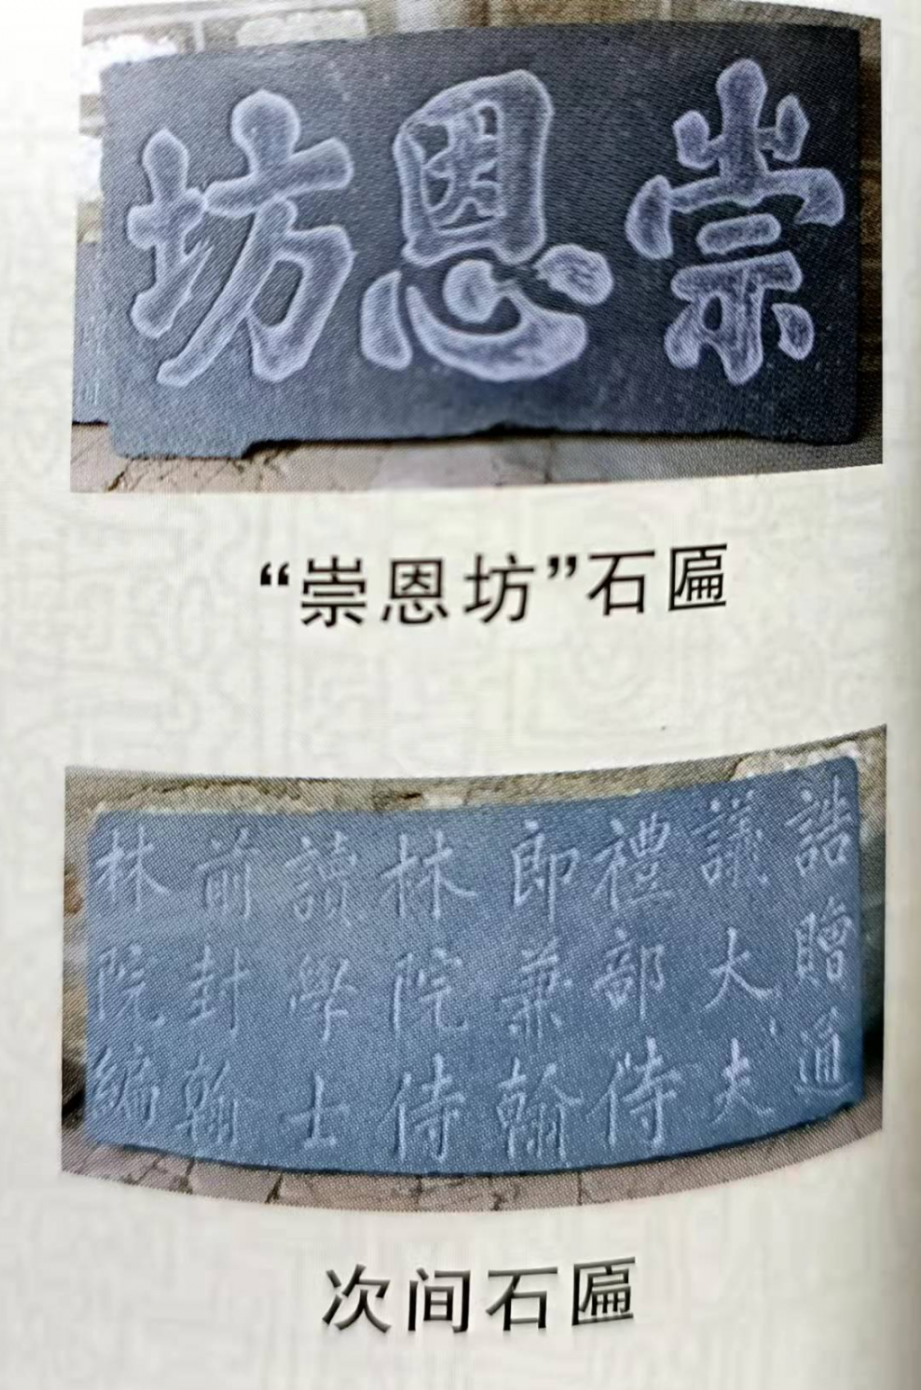 崇恩坊
“崇恩坊”石匾
誥贈通
議大夫
禮部侍
郎兼翰
林院侍
讀學士
前封翰
林院編
次间石匾